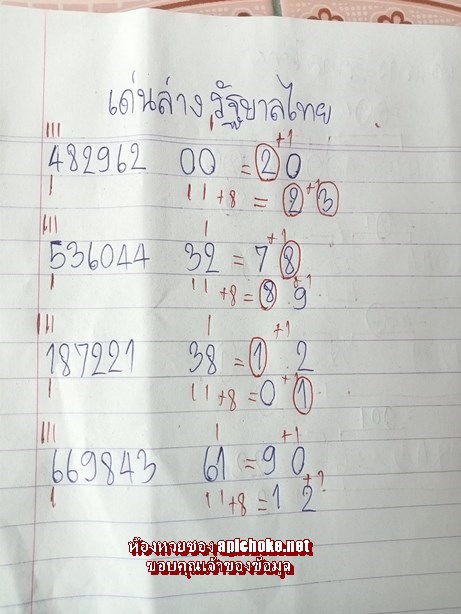 เด่นล่าง รัฐบาลไทย
+1
482962 00 = 20
+8 = 2 3
+1
+1
536044 32 = 7 8
+8 = 8 9
+1
+1
187221 38 = 1 2
+8 = 0 1
+1
+1
669843 61 = 9 0
+8 = 1 2
ห้องหวยซอง apichoke.net
ขอบคุณเจ้าของข้อมูล